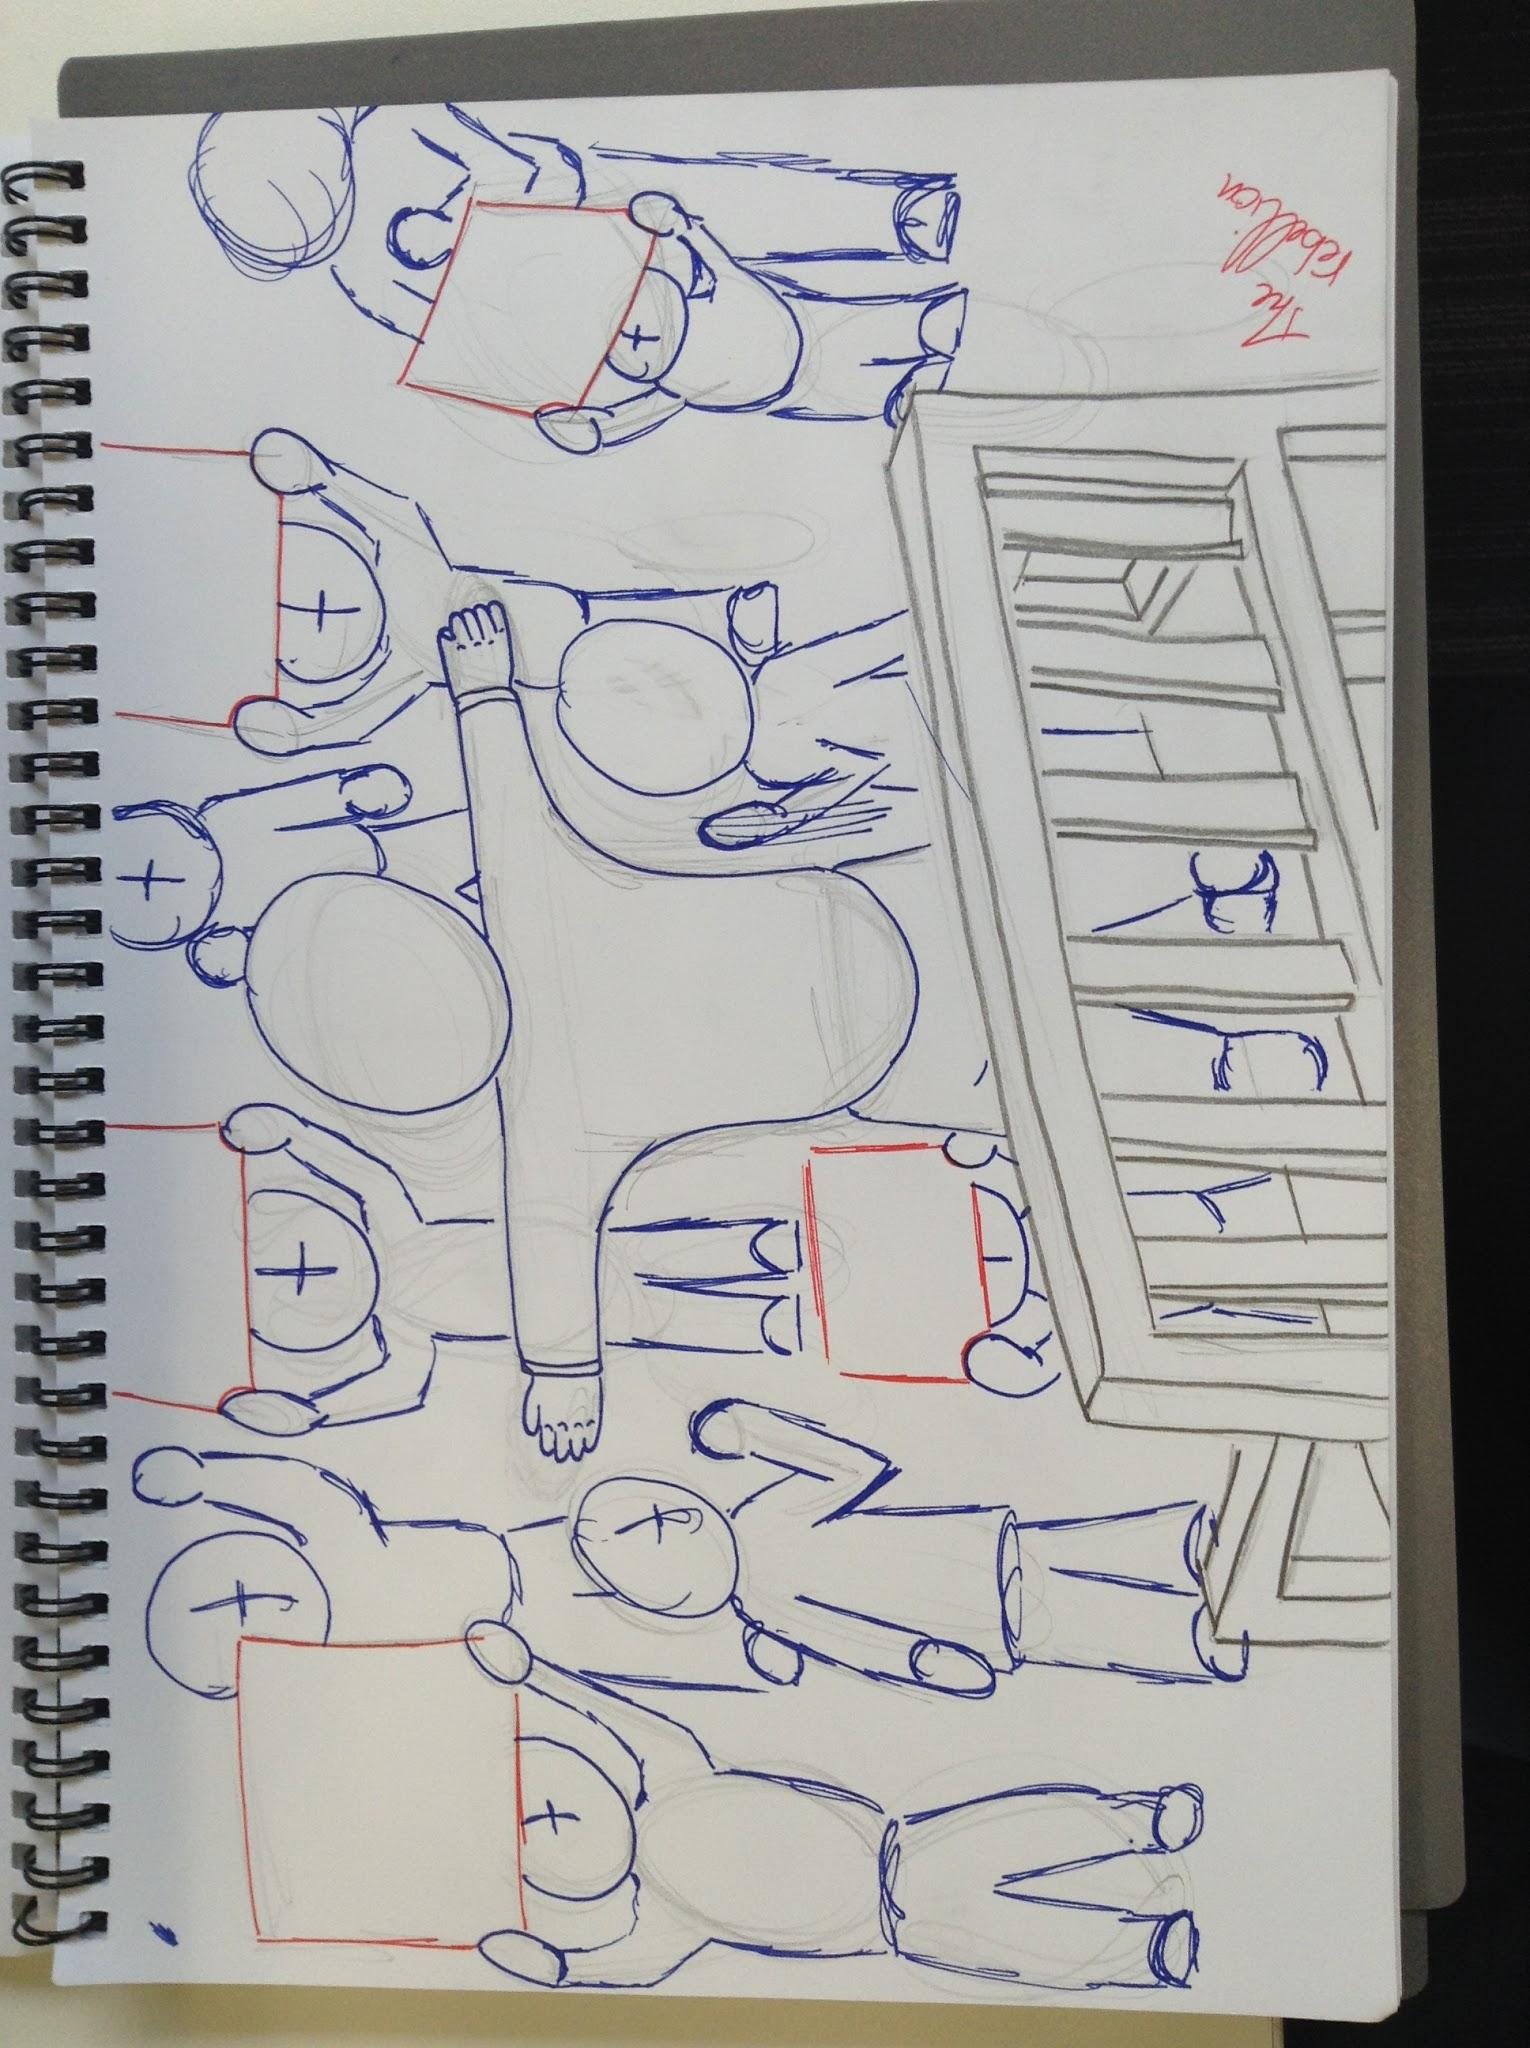 The
rebellion